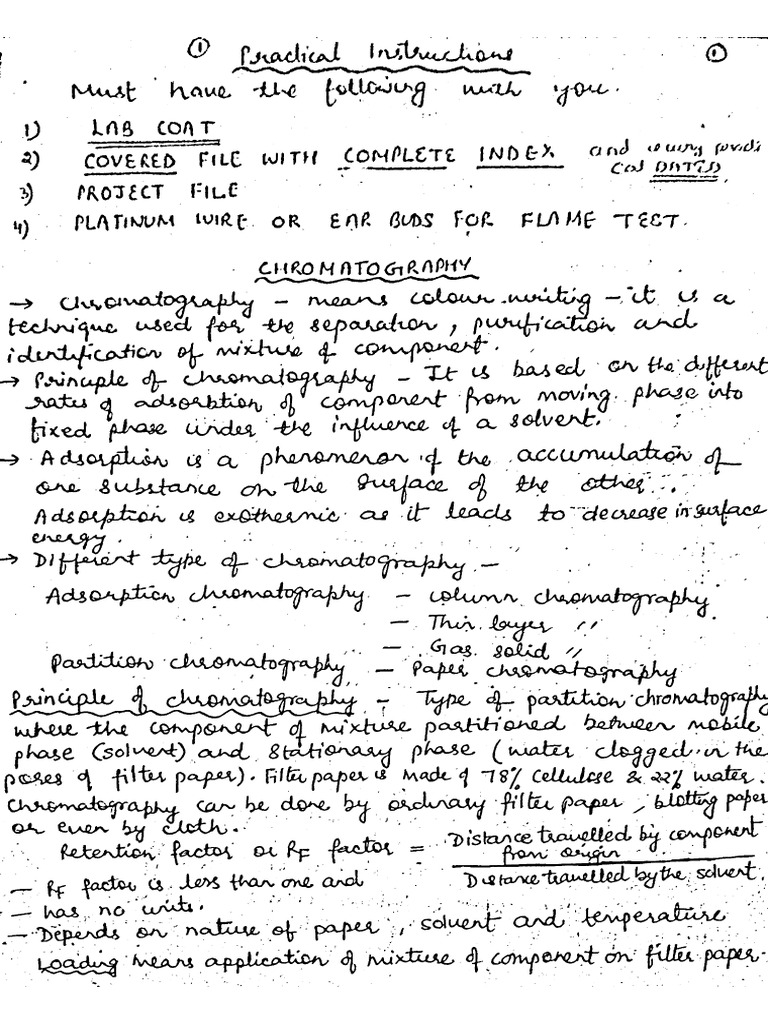 ① Practical Instructions ①
Must have the following with you.
1) LAB COAT
2) COVERED FILE WITH COMPLETE INDEX and
3) PROJECT FILE
4) PLATINUM WIRE OR EAR BUDS FOR FLAME TEST.
CHROMATOGRAPHY
→ Chromatography - means colour writing - it is a
technique used for the separation, purification and
identification of mixture of component.
→ Principle of chromatography - It is based on the different
rates of adsorption of component from moving phase into
fixed phase under the influence of a solvent.
→ Adsorption is a phenomenon of the accumulation of
one substance on the surface of the other.
Adsorption is exothermic as it leads to decrease in surface
energy.
→ Different type of chromatography -
Adsorption chromatography - column chromatography
- Thin layer "
- Gas solid "
Partition chromatography - Paper chromatography
Principle of chromatography - Type of partition chromatography
where the component of mixture partitioned between mobile
phase (solvent) and stationary phase (water clogged in the
pores of filter paper). Filter paper is made of 78% cellulose & 22% water.
Chromatography can be done by ordinary filter paper, blotting paper
or even by cloth.
Retention factor or RF factor = Distance travelled by component
from origin
Distance travelled by the solvent.
- RF factor is less than one and
- has no units.
- Depends on nature of paper, solvent and temperature
Loading means application of mixture of component on filter paper.